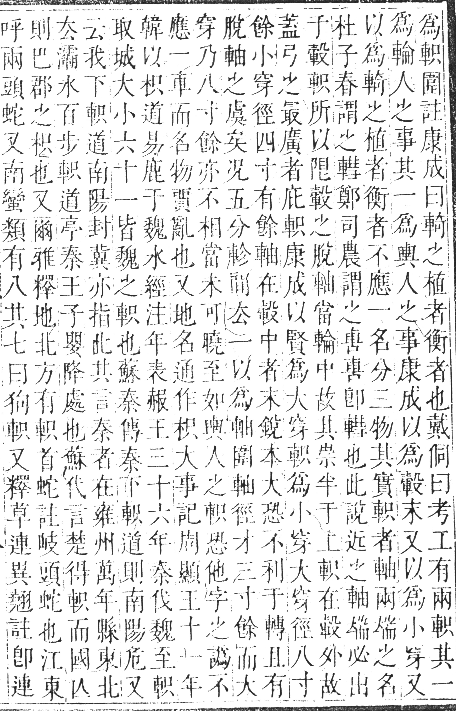 爲軹圍註康成曰輢之植者衡者也戴侗曰考工有兩軹其一
爲輪人之事其一爲輿人之事康成以爲轂末又以爲小穿又
以爲輢之植者衡者不應一名分三物其實軹者軸兩端之名
杜子春謂之轊鄭司農謂之軎軎卽轊也此說近之軸端必出
于轂軹所以限轂之脫軸當輪中故其崇半于上軹在轂外故
蓋弓之最廣者庇軹康成以賢爲大穿軹爲小穿大穿徑八寸
餘小穿徑四寸有餘軸在轂中者末銳本大恐不利于轉且有
脫軸之虞矣况五分軫間去一以爲軸圍軸徑才三寸餘而大
穿乃八寸餘亦不相當未可曉至如輿人之軹恐他字之譌不
應一車而名物賈亂也又地名通作枳大事記周顯王十一年
韓以枳道易鹿于魏水經注年表赧王三十六年秦伐魏至軹
取城大小六十一皆魏之軹也蘇秦傳秦下軹道則南陽危又
云我下軹道南陽封冀亦指此其言秦者在雍州萬年縣東北
去灞水百步軹道亭秦王子嬰降處也蘇代言楚得軹而國亾
則巴郡之枳也又爾雅釋地北方有軹首蛇註岐頭蛇也江東
呼兩頭蛇又南蠻類有八其七曰狗軹又釋草連異翹註卽連